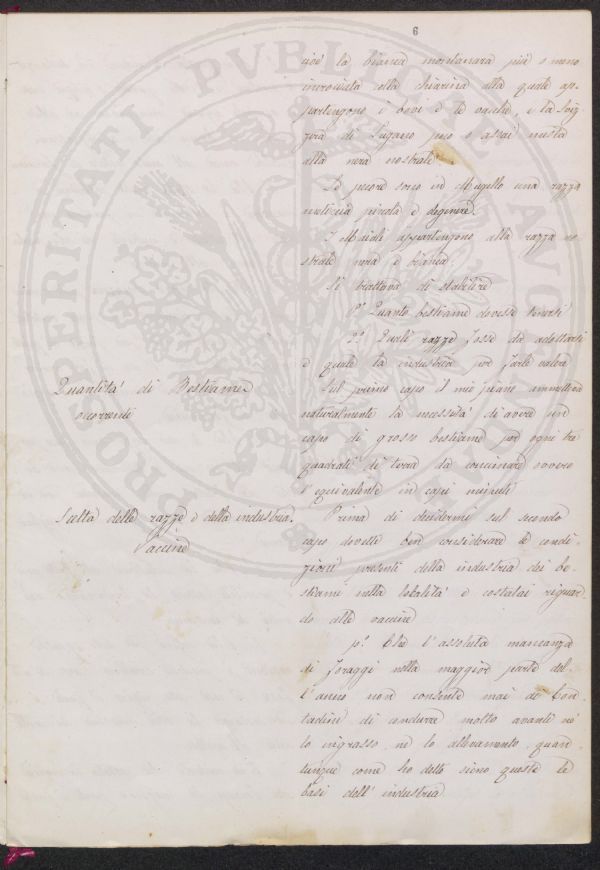 6
cioè la bianca montanara più o meno
incrociata colla chiarina alla quale ap-
partengono i bovi e le vacche, e la Sviz-
zera di Lugano più o assai mista
alla nera nostrale
Le pecore sono in Mugello una razza
meticcia piccola e degenere.
I Maiali appartengono alla razza no
strale nera e bianca.
Si trattava di stabilire
1º Quanto bestiame dovesse tenersi
2º Quale razze fosse da adottarsi
e quale la industria per farle valere
Quantità di Bestiame
occorrente
Sul primo capo il mio piano ammetteva
naturalmente la necessità di avere un
capo di grosso bestiame per ogni tre
quadrati di terra da concimare ovvero
l'equivalente in capi minuti
Scelta delle razze e della industria.
Vaccine
Prima di decidermi sul secondo
capo dovetti ben considerare le condi-
zioni presenti della industria dei be-
stiami nella località e costatai riguar-
do alle vaccine
pº. Che l'assoluta mancanza
di foraggi nella maggior parte del-
l'anno non consente mai ai Con
tadini di condurre molto avanti nè
lo ingrasso nè lo allevamento, quan-
tunque come ho detto sieno queste le
basi dell'industria
PROSPERITATI PVBLICAE AVGENDAE